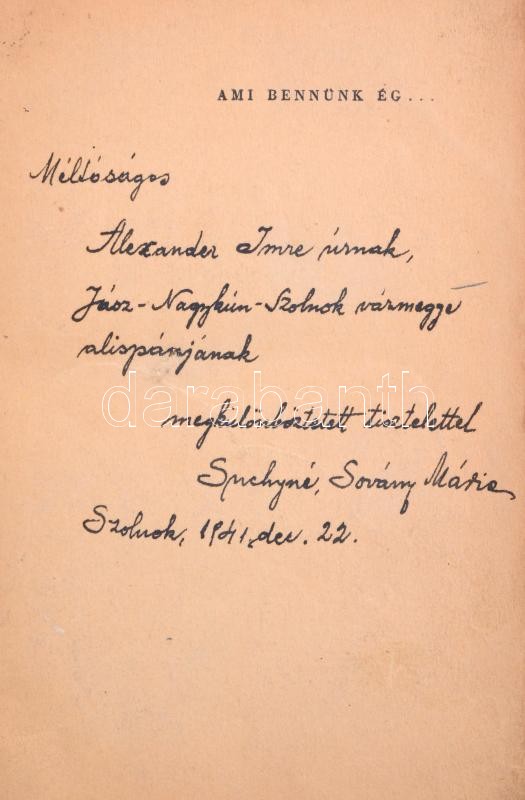 AMI BENNÜNK ÉG...
Méltóságos
Alexander Imre úrnak,
Jász-Nagykún-Szolnok vármegye
alispánjának
darabanth
megkülönböztetett tisztelettel
Suchyné, Sovány Mária
Szolnok, 1941, dec. 22.